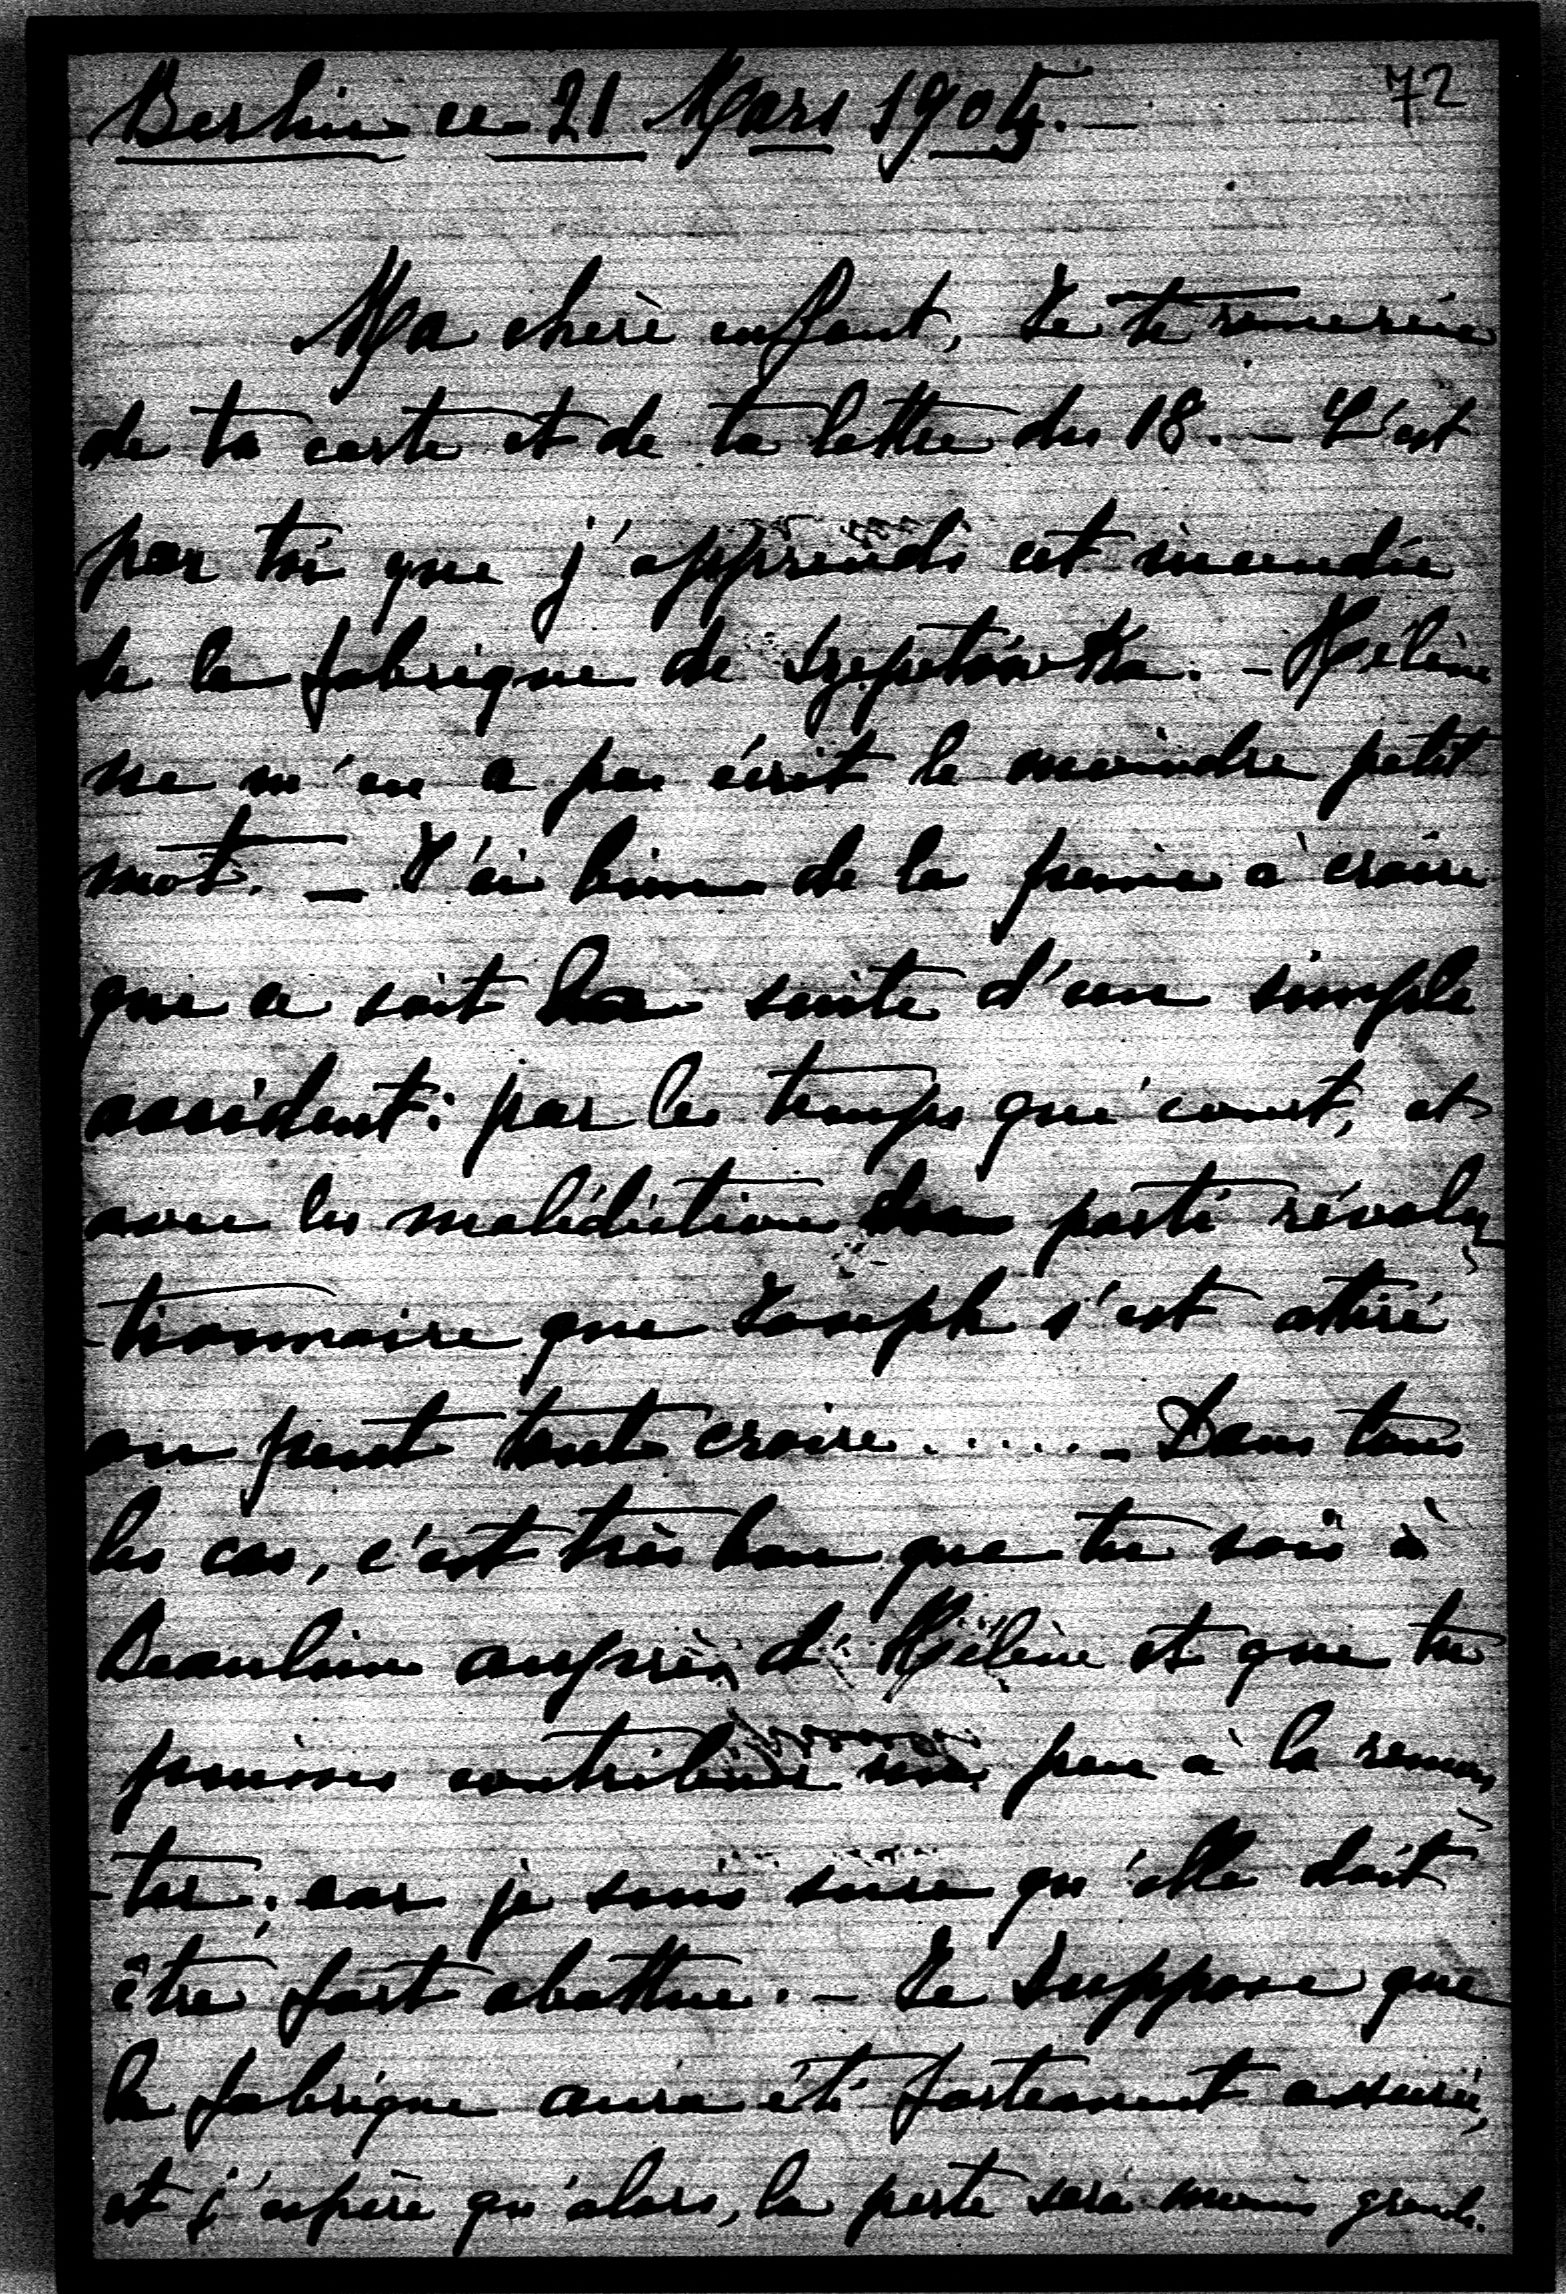 Berlin ce 21 Mars 1905. — 72
Ma cherè enfant, Je te remercie
de ta carte et de ta lettre du 18. — C'est
par toi que j'apprends cet incendie
de la fabrique de Szepetówka. — Hélène
ne m'en a pas écrit le moindre petit
mot. — J'ai bien de la peine à croire
que ce soit la suite d'un simple
accident: par les temps qui court, et
avec les malédictions du parti révolu
-tionnaire que Joseph s'est attiré
on peut tout croire...... — Dans tous
les cas, c'est très bon que tu sois à
Beaulieu auprès d'Hélène et que tu
puisses contribuer un peu à la remon
-ter; car je suis sûre qu'elle doit
être fort abattue. — Je suppose que
la fabrique aura été fortement assurée,
et j'espère qu'alors, la perte sera moins grande.